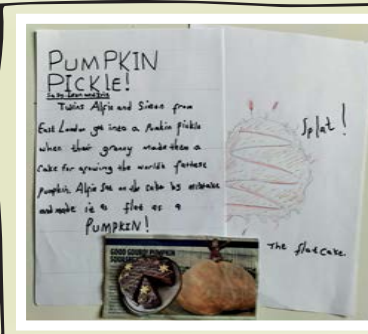 PUMPKIN
PICKLE!
Twins Alfie and Simon from
East London got into a Pumkin pickle
when their granny made them a
cake for growing the worlds fattest
pumpkin. Alfie sat on the cake by mistake
and made it as flat as a
PUMPKIN!
Splat!
The flat cake.
GOOD GOURD! PUMPKIN